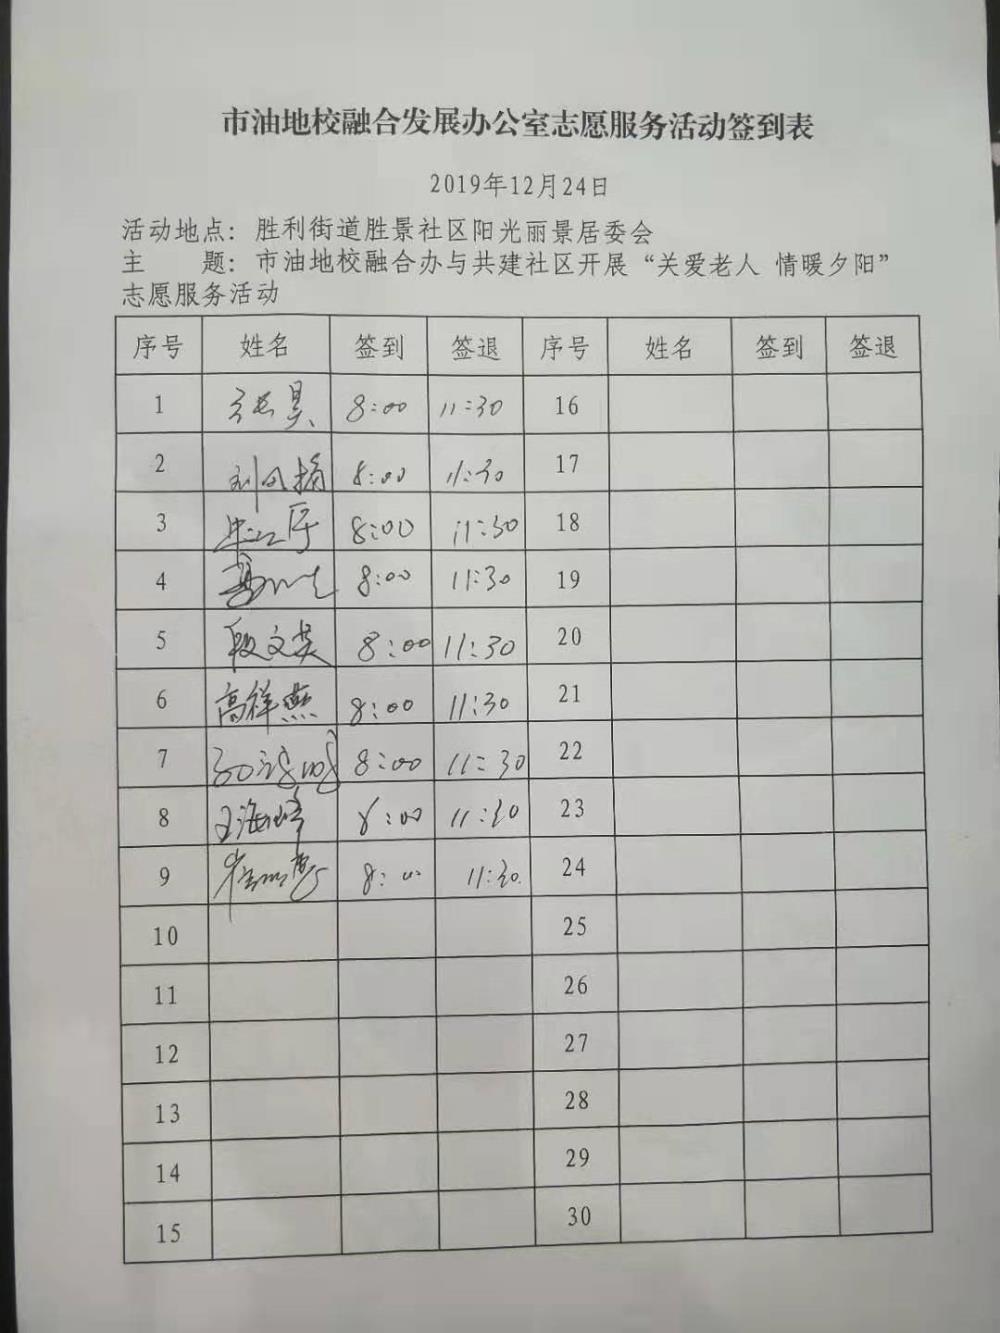 市油地校融合发展办公室志愿服务活动签到表
2019年12月24日
活动地点：胜利街道胜景社区阳光丽景居委会
主 题：市油地校融合办与共建社区开展“关爱老人 情暖夕阳”
志愿服务活动
序号 姓名 签到 签退 序号 姓名 签到 签退
1 张昊 8:00 11:30 16
2 8:00 11:30 17
3 8:00 11:30 18
4 8:00 11:30 19
5 段文英 8:00 11:30 20
6 高祥燕 8:00 11:30 21
7 8:00 11:30 22
8 王海峰 8:00 11:30 23
9 8:00 11:30 24
10 25
11 26
12 27
13 28
14 29
15 30